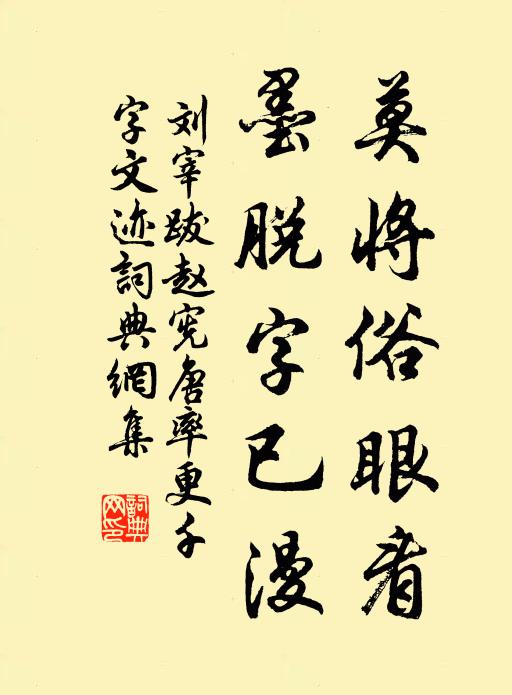 莫将俗眼看
墨脱字已漫
刘宰跋赵宪唐率更千
字文迹詞典網集
詞典
网印